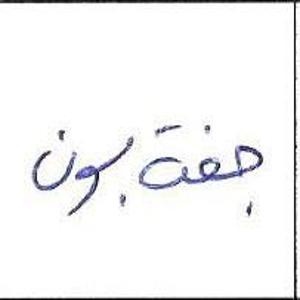 جفت بون